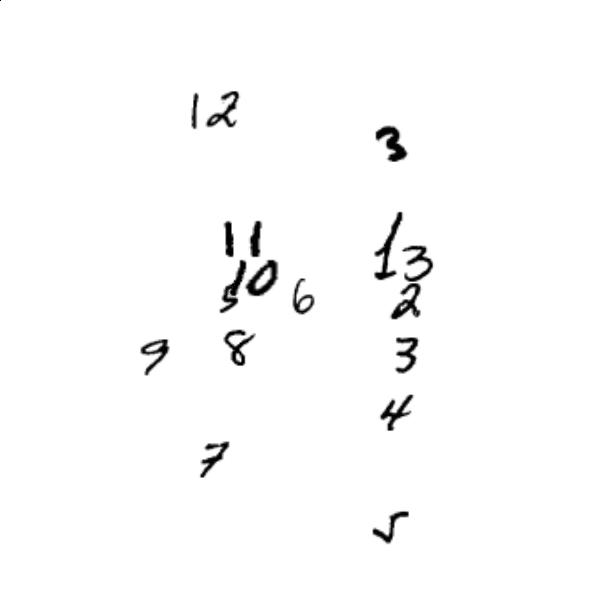 12
3
11
1 3
10
5 6 2
9 8 3
4
7
5